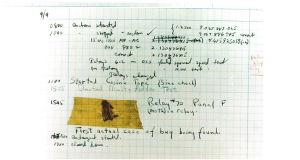 9/9
0800 Antan started
1000 " stopped - antan ✓
13" uc (032) MP - MC
033 PRO 2 2.130476415
correct 2.130676415
Relays 6-2 in 033 failed special speed test
in relay
Relays changed
1100 Started Cosine Tape (Sine check)
1525 Started Multi Adder Test.
1545 Relay #70 Panel F
(moth) in relay.
First actual case of bug being found.
antangent started.
1700 closed down.